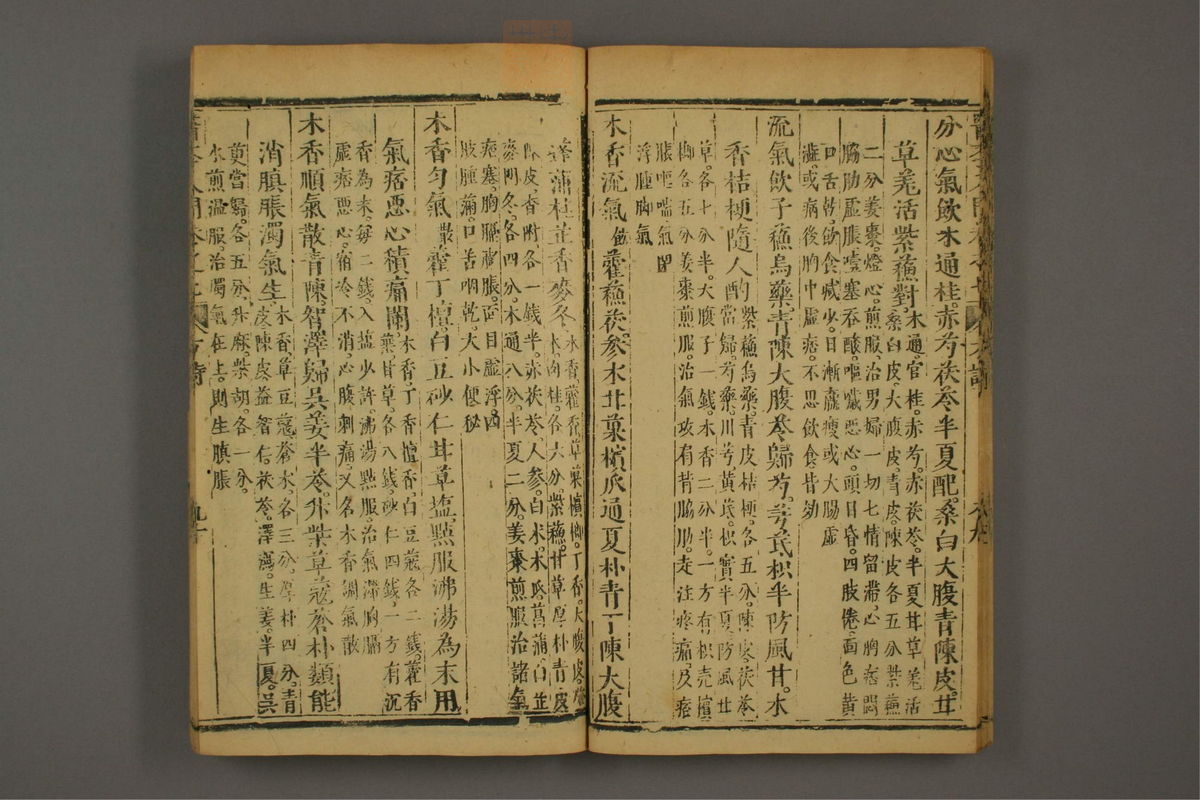 分心氣飲木通桂。赤芍茯苓半夏配。桑白大腹青陳皮。甘
草羗活紫蘓對。木通。官桂。赤芍。赤茯苓。半夏甘草羗活
桑白皮。大腹皮。青皮。陳皮各五分紫蘓
二分姜棗。燈心。煎服治男婦一切七情留滯。心胸痞悶
脇肋虛脹。噎塞吞酸。嘔噦惡心。頭目昏。四肢倦。面色黃
口舌乾。飲食減少。日漸羸瘦或大腸虛
澁。或病後胸中虛痞。不思飲食皆効
流氣飲子蘓烏藥。青陳大腹苓歸芍。芎芪枳半防風甘。木
香桔梗隨人酌 紫蘓烏藥青皮桔梗。各五分。陳皮茯苓
當歸。芍藥。川芎。黃芪。枳實半夏。防風甘
草。各七分半。大腹子一錢。木香二分半。一方有枳壳檳
榔各五分姜棗煎服。治氣攻有背脇肋。走注疼痛。及痞
脹嘔喘。氣
浮腫脚氣
木香流氣飲藿蘓茯。參木甘菓檳瓜通夏朴青丁陳大腹
莪蒲桂芷香麥冬。木香。藿香草菓檳榔。丁香。大腹皮
木。肉桂。各六分。紫蘓。甘草厚朴青皮
陳皮。香附各一錢半。赤茯苓。人參。白木。木瓜菖蒲。白芷
麥門冬。各四分。木通八分。半夏二分。姜棗煎服治諸氣
痞塞。胸膈膨脹。面目虛浮四
肢腫滿。口苦咽乾。大小便秘
木香勻氣散藿丁檀。白豆砂仁甘草塩。㸃服沸湯為末用
氣痞惡心積痛闌。木香。丁香檀香。白豆蔻各二錢藿香
葉。甘草。各八錢。砂仁四錢。一方有沉
香為末。每二錢。入塩少許。沸湯㸃服。治氣滯胸膈
虛痞惡心。宿冷不消心腹刺痛。又名木香調氣散
木香順氣散青陳。智澤歸吳姜半苓。升柴草蔻蒼朴類能
消䐜脹濁氣生。木香。草豆蔻蒼木。各三分。厚朴四分。青
皮陳皮益智仁。茯苓。澤瀉。生姜。半夏。吳
萸當歸。各五分。升麻。柴胡。各一分。
水煎溫服。治濁氣在上。則生䐜脹